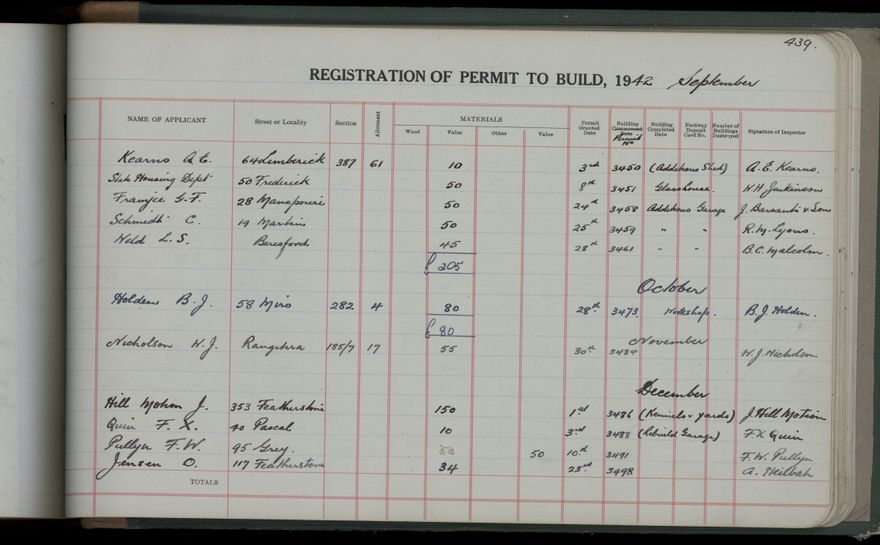 439.
REGISTRATION OF PERMIT TO BUILD, 1942 September
NAME OF APPLICANT Street or Locality Section Allotment MATERIALS Wood Value Other Value Permit Granted Date Building Commenced Date Permit No Building Completed Date Footway Deposit Card No. Number of Buildings Destroyed Signature of Inspector
Kearns A. E. 64 Limberick 387 61 10 3rd 3450 (Additions Shed) A. E. Kearns.
State Housing Dept 50 Frederick 50 8th 3451 Glasshouse. W.H. Jenkinson
Framjee G. F. 28 Manapouri 50 24th 3458 Additions Garage J. Barsanti & Son
Schmidt C. 19 Martin 50 25th 3459 " " R. M. Lyons.
Weld L. S. Beresford 45 28th 3461 " " B. C. Malcolm.
£ 205
October
Holden B. J. 58 Miro 282 4 80 28th 3473 Workshop. B. J. Holden.
£ 80
November
Nicholson W. J. Rangitira 185/7 17 55 30th 3484 W. J. Nicholson
December
Hill Motion J. 353 Featherstone 150 1st 3486 (Kennels & yards) J. Hill Motion
Quin F. X. 40 Pascal 10 3rd 3488 (Rebuild Garage) F. X. Quin
Pullyn F. W. 95 Grey. 50 50 10th 3491 F. W. Pullyn
Jensen O. 117 Featherstone 34 23rd 3498 A.
TOTALS